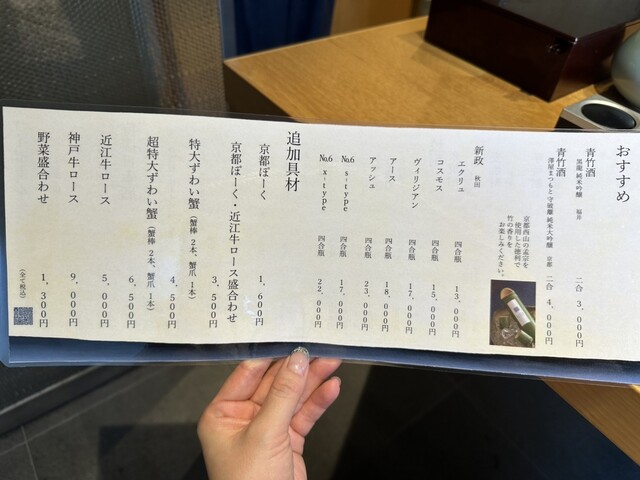 おすすめ
青竹酒
黒龍 純米吟醸 福井 二合 3,000円
青竹酒
澤屋まつもと 守破離 純米大吟醸 京都 二合 4,000円
京都西山の孟宗を
使用した徳利で
竹の香りを
お楽しみください。
新政 秋田
エクリュ 四合瓶 13,000円
コスモス 四合瓶 15,000円
ヴィリジアン 四合瓶 17,000円
アース 四合瓶 18,000円
アッシュ 四合瓶 23,000円
№6 s-type 四合瓶 17,000円
№6 x-type 四合瓶 22,000円
追加具材
京都ぽーく 1,600円
京都ぽーく・近江牛ロース盛合わせ 3,500円
特大ずわい蟹(蟹棒 2本、蟹爪 1本) 4,500円
超特大ずわい蟹(蟹棒 2本、蟹爪 1本) 6,500円
近江牛ロース 5,000円
神戸牛ロース 9,000円
野菜盛合わせ 1,300円
(全て税込)